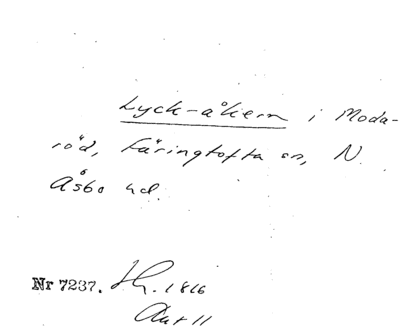 Lyck-åkern i Moda-
röd, Färingtofta sn, N.
Åsbo hd.
Nr 7237. 1816
Akt 11